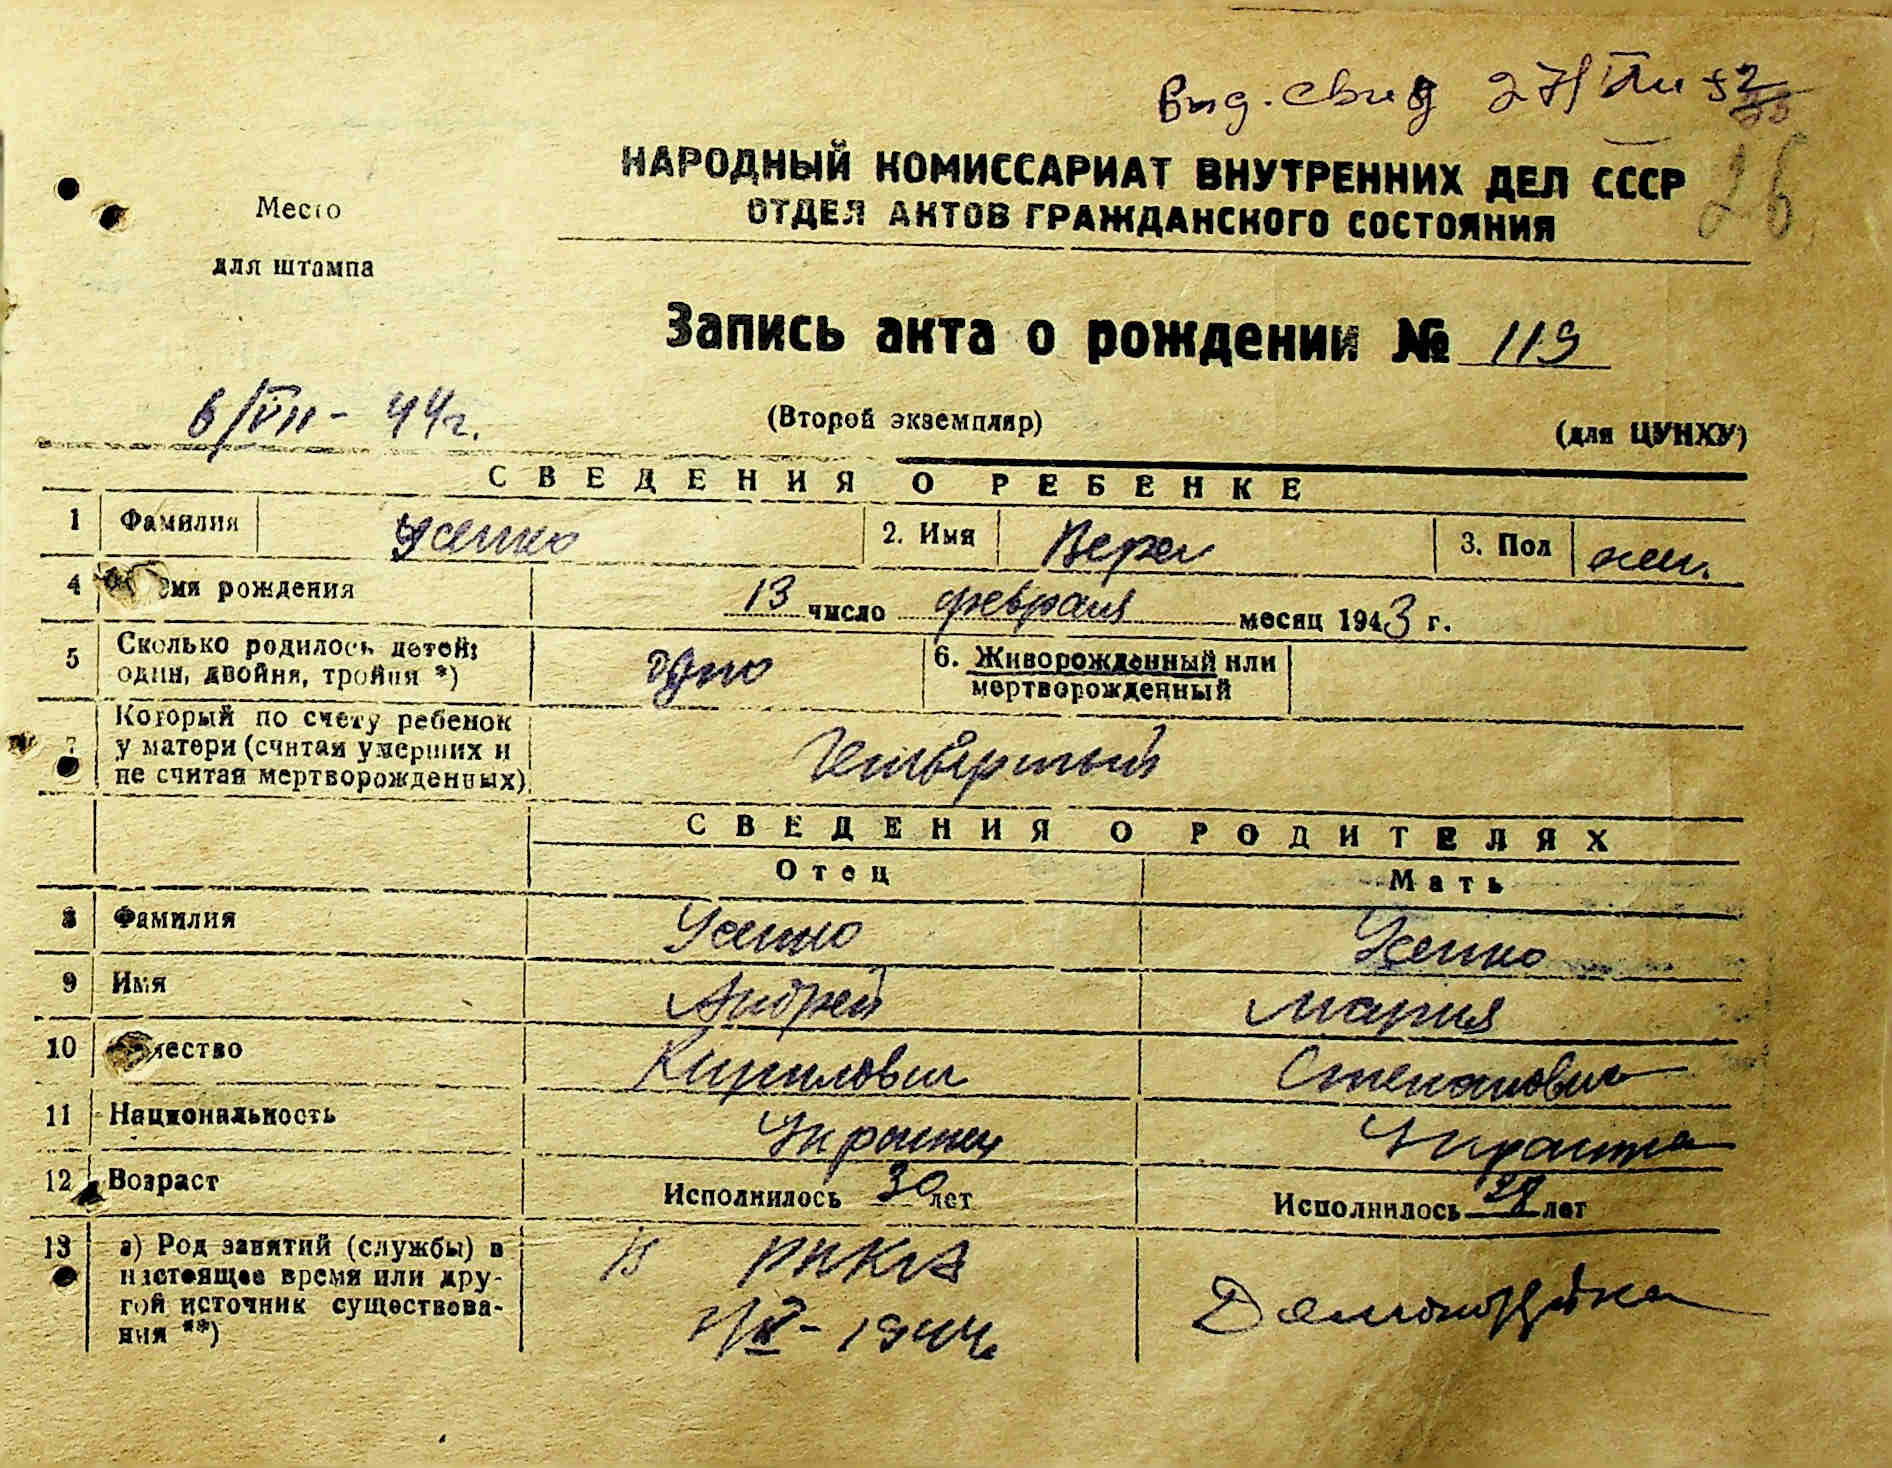 Вид. свид 27/VIII 52
НАРОДНЫЙ КОМИССАРИАТ ВНУТРЕННИХ ДЕЛ СССР
26
ОТДЕЛ АКТОВ ГРАЖДАНСКОГО СОСТОЯНИЯ
Место
для штампа
Запись акта о рождении № 119
6/VII - 44г.
(Второй экземпляр)
(для ЦУНХУ)
СВЕДЕНИЯ О РЕБЕНКЕ
1 Фамилия Усенко 2. Имя Вера 3. Пол жен.
4 Время рождения 13 число февраля месяц 1943 г.
5 Сколько родилось детей: один, двойня, тройня *) одно 6. Живорожденный или мертворожденный
7 Который по счету ребенок
у матери (считая умерших и
не считая мертворожденных)
Четвертый
СВЕДЕНИЯ О РОДИТЕЛЯХ
Отец Мать
8 Фамилия Усенко Усенко
9 Имя Андрей Мария
10 Отчество Кирилович Степановна
11 Национальность Украинец Украинка
12 Возраст Исполнилось 30 лет Исполнилось лет
13 а) Род занятий (службы) в
настоящее время или дру-
гой источник существова-
ния **)
В РККА
1944.
Домохозяйка